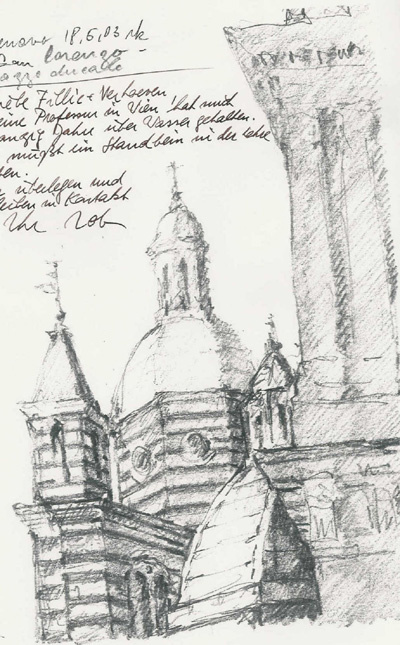 enova 18,6,03
San Lorenzo –
azzo ducale
eine Professur in Wien hat mich
anzig Jahre über Wasser gehalten.
müsst ein Standbein in der Lehre
ben.
überlegen und
leiben in Kontakt
Ihr Rob